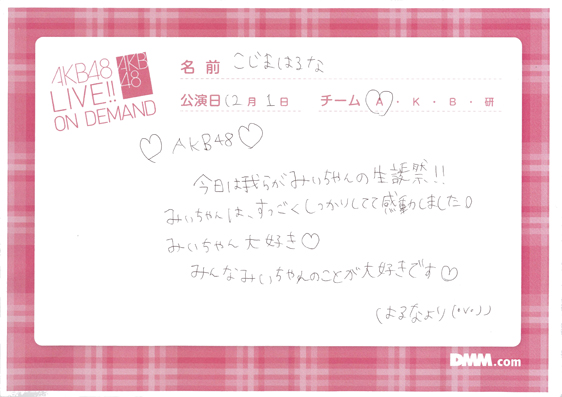 AKB48
LIVE!!
ON DEMAND
AKB
48
名前 こじまはるな
公演日 12月1日 チーム A・K・B・研
♡ AKB48 ♡
今日は我らがみぃちゃんの生誕祭!!
みぃちゃんは、すっごくしっかりしてて感動しました。
みぃちゃん大好き♡
みんなみぃちゃんのことが大好きです♡
(はるなより(・v・))
DMM.com